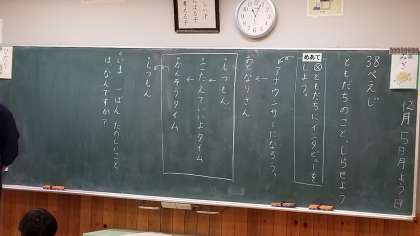 12月5日月よう日
38ぺえじ
ともだちのこと、しらせよう
めあて
ともだちにインタビューを
しよう。
アナウンサーになろう。
おとなりさん
↓
しつもん
↓
こたえていいよタイム
↓
かんそうタイム
しつもん
いま 一ばん たのしいこと
は なんですか?